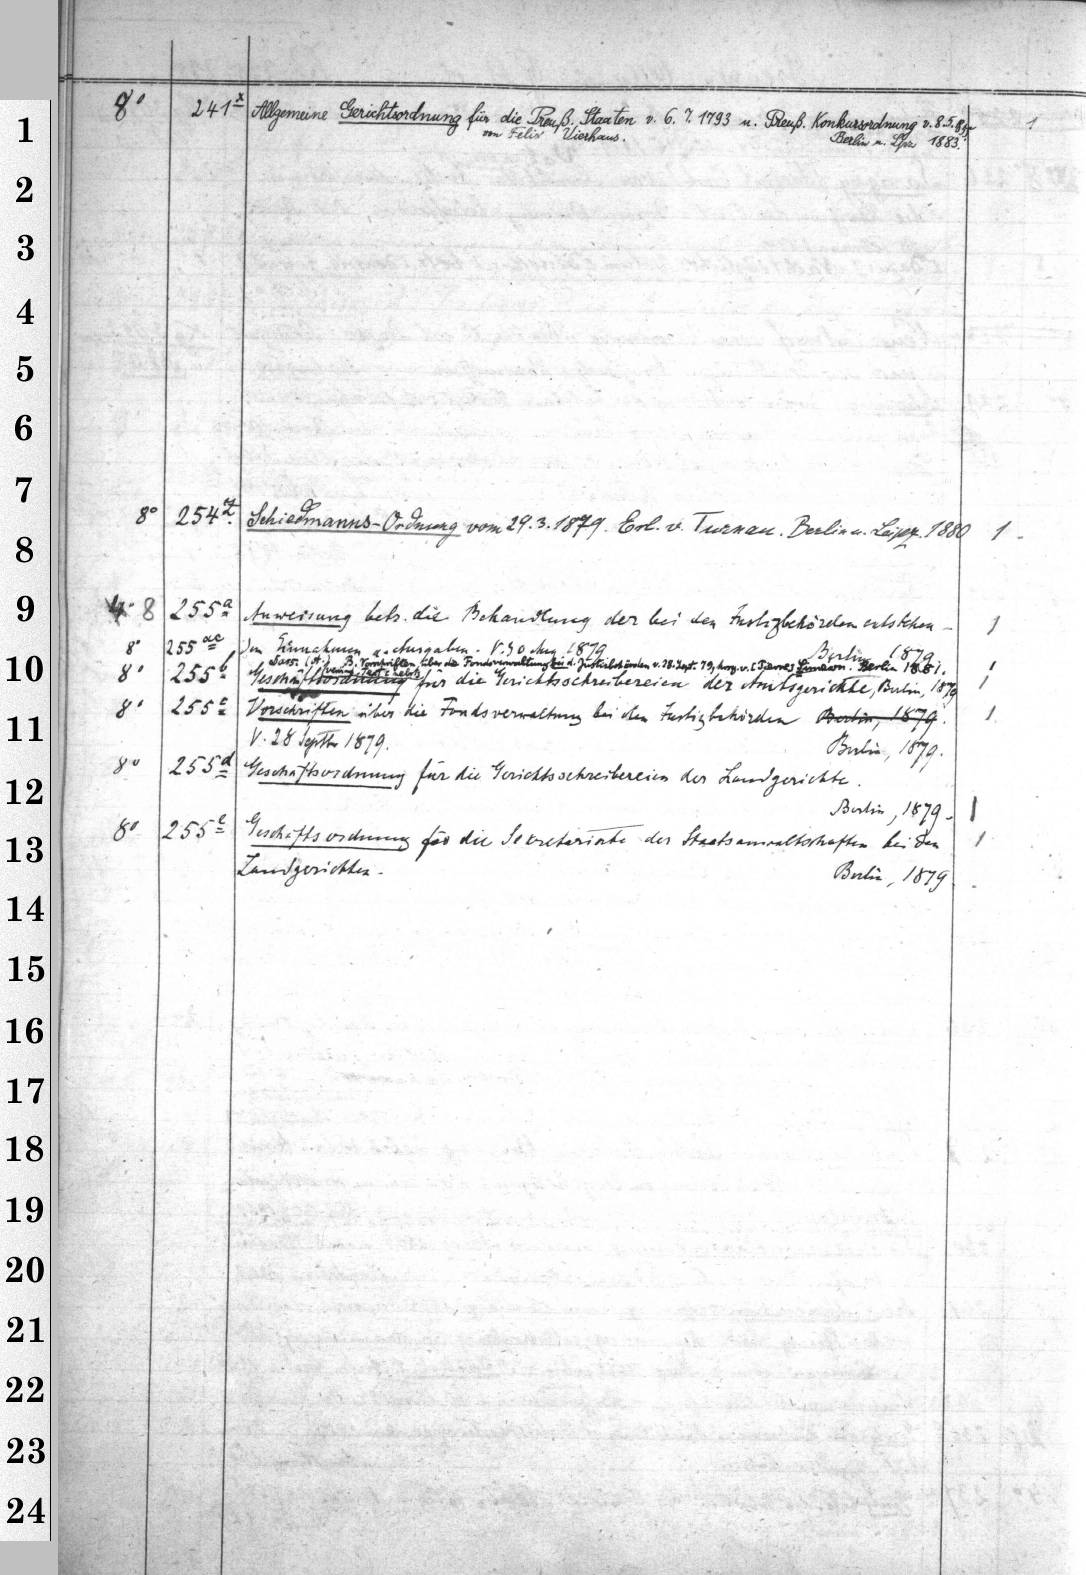 8° 241x Allgemeine Gerichtsordnung für die Preuß. Staaten v. 6. 7. 1793 u. Preuß. Konkursordnung v. 8.5.
von Felix Vierhaus. Berlin u. Lpz 1883. 1
8° 254z. Schiedmanns-Ordnung vom 29.3.1879. Erl. v. Turnau. Berlin u. Leipz. 1880 1
8 255a Anweisung betr. die Behandlung der bei den Justizbehörden entstehen- 1
den Einnahmen u. Ausgaben. V. 30 Aug. 1879 Berlin 1879
8° 255ac Vorschriften über die Fondsverwaltung bei d. Justizbehörden v. 28. Sept. 79, hrsg. v. Simeon. Berlin 1881. 1
8° 255b Geschäftsordnung für die Gerichtsschreibereien der Amtsgerichte, Berlin, 1879 1
8° 255c Vorschriften über die Fondsverwaltung bei den Justizbehörden Berlin, 1879. 1
V. 28 Septbr 1879. Berlin, 1879.
8° 255d Geschäftsordnung für die Gerichtsschreibereien der Landgerichte.
Berlin, 1879. 1
8° 255e Geschäftsordnung für die Sekretariate der Staatsanwaltschaften bei den 1
Landgerichten. Berlin, 1879.
1
2
3
4
5
6
7
8
9
10
11
12
13
14
15
16
17
18
19
20
21
22
23
24